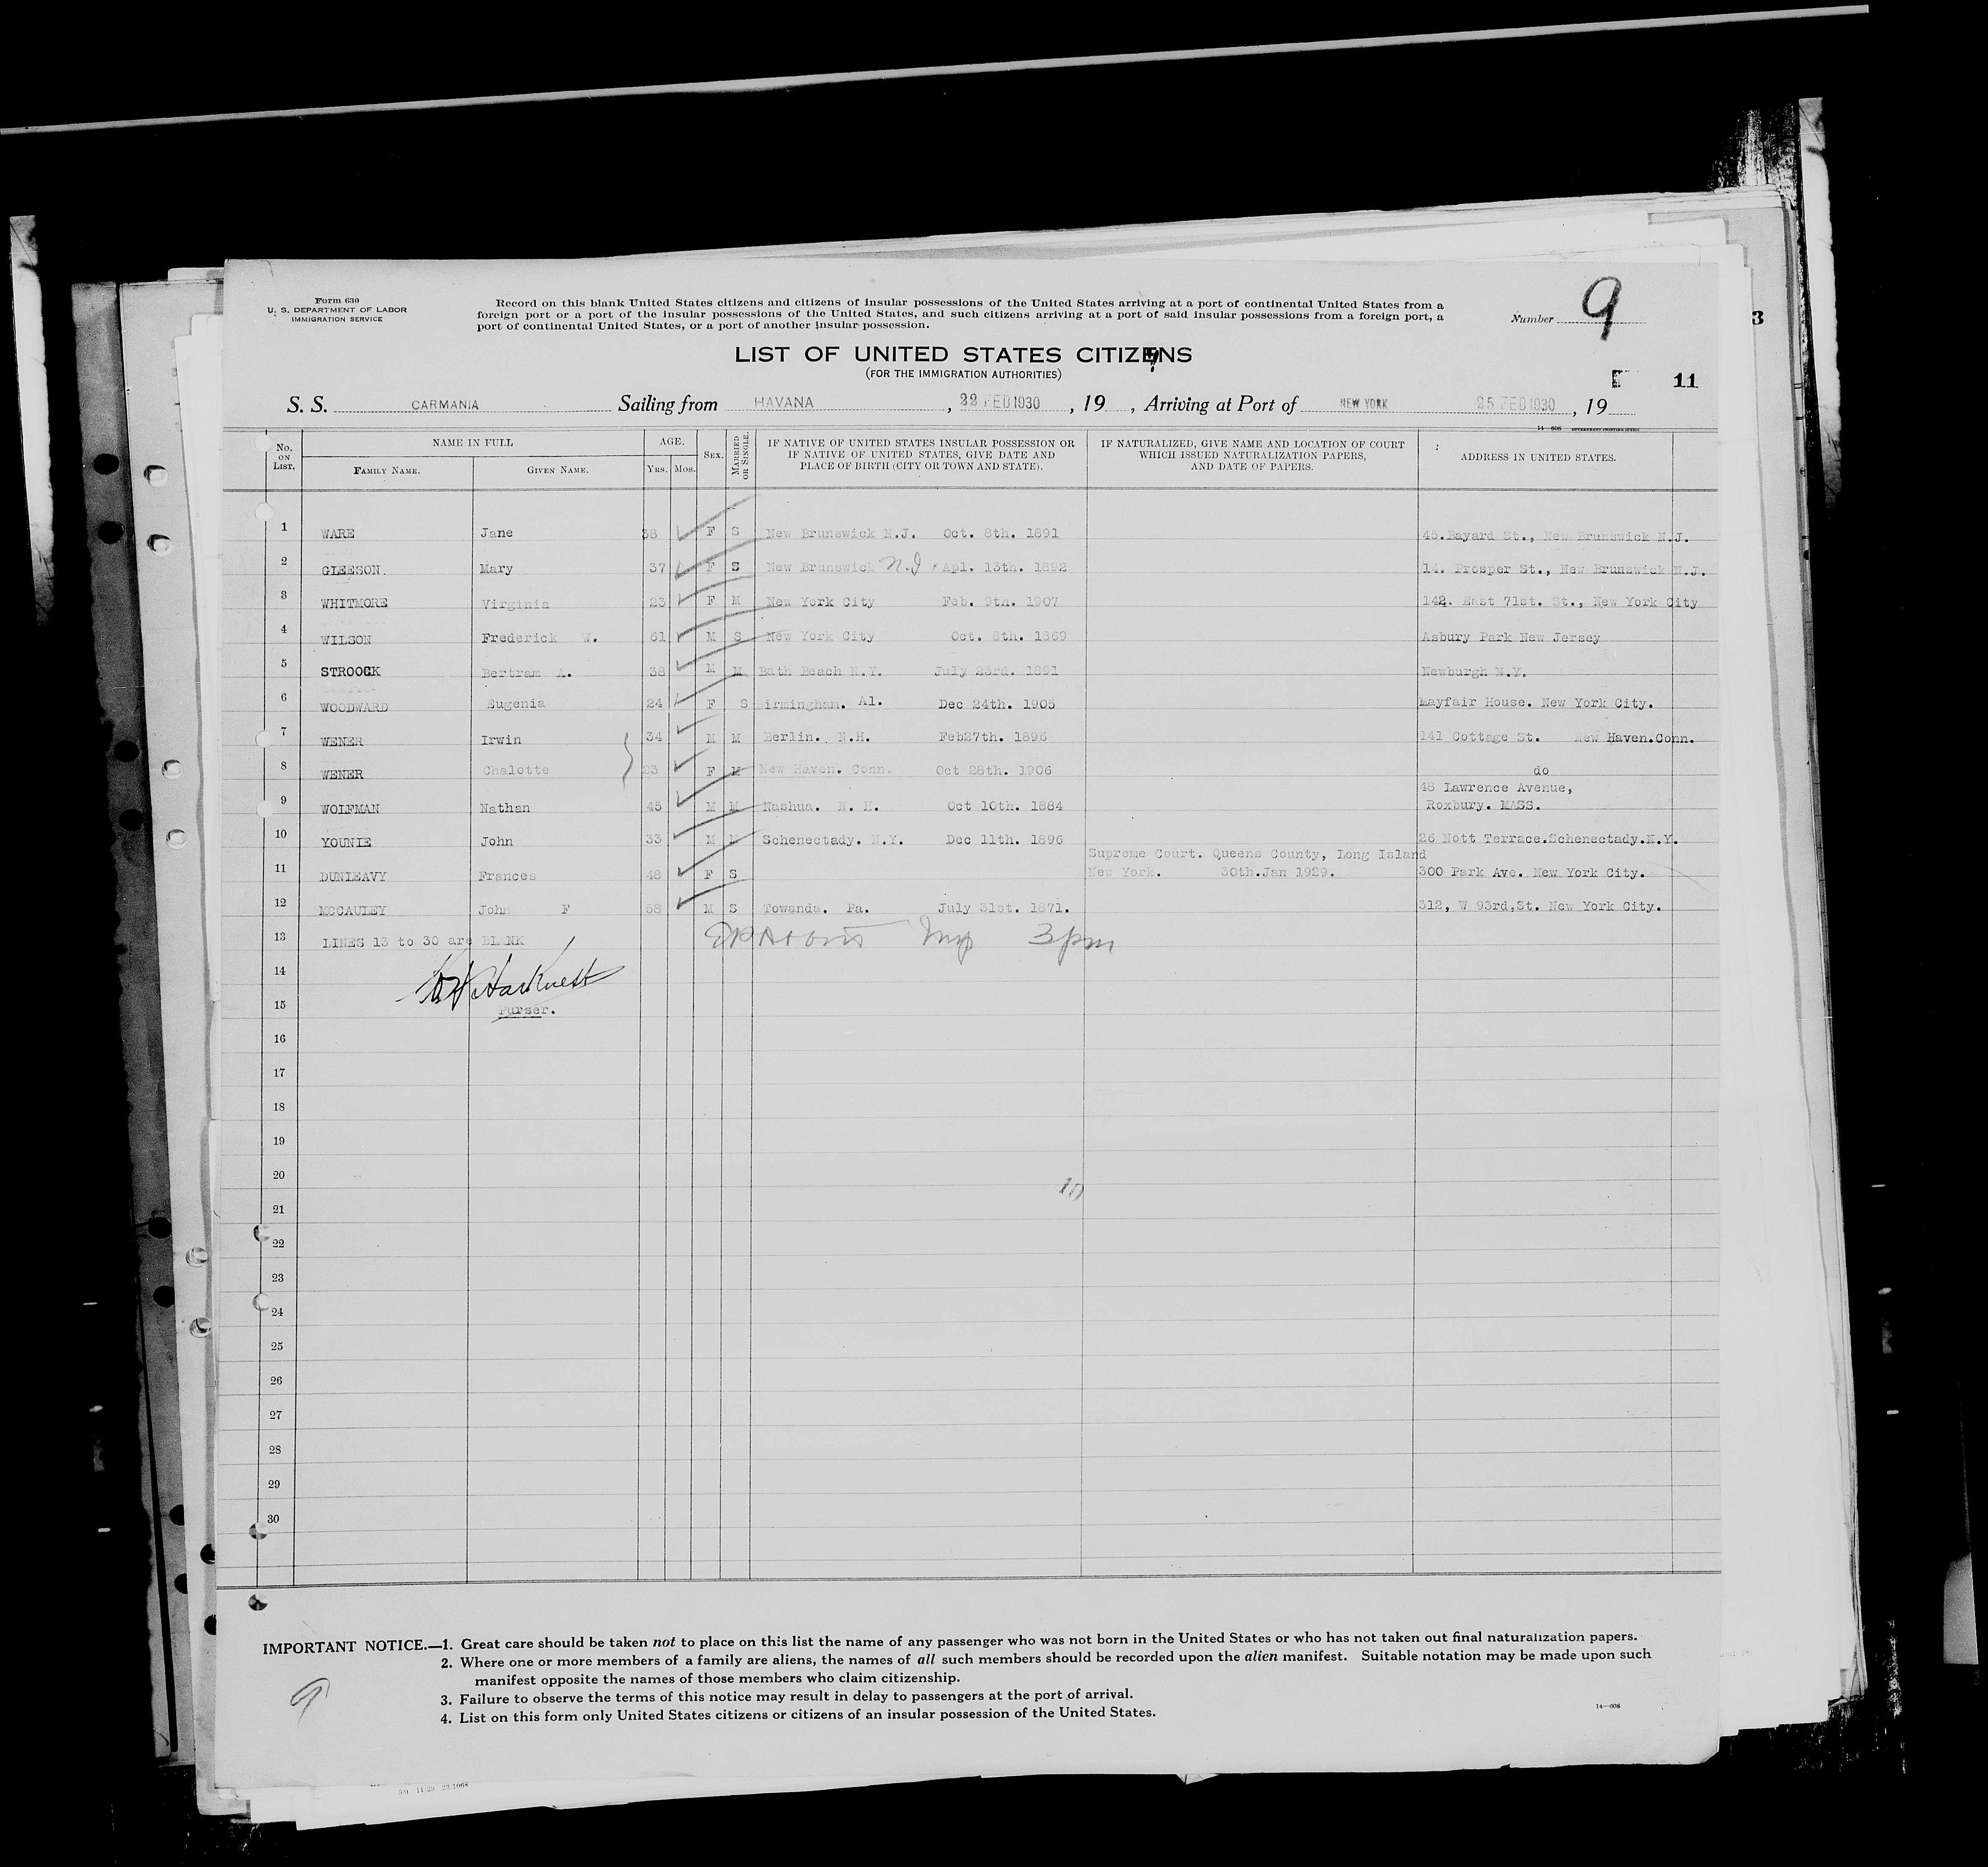 Form 630
U. S. DEPARTMENT OF LABOR
IMMIGRATION SERVICE
Record on this blank United States citizens and citizens of insular possessions of the United States arriving at a port of continental United States from a
foreign port or a port of the insular possessions of the United States, and such citizens arriving at a port of said insular possessions from a foreign port, a
port of continental United States, or a port of another insular possession.
Number 9
3
LIST OF UNITED STATES CITIZENS
(FOR THE IMMIGRATION AUTHORITIES)
11
S. S. CARMANIA Sailing from HAVANA, 22 FEB 1930, 19 , Arriving at Port of NEW YORK 25 FEB 1930, 19
14—608 GOVERNMENT PRINTING OFFICE
No. ON LIST. NAME IN FULL FAMILY NAME. GIVEN NAME. AGE. YRS. MOS. SEX. MARRIED OR SINGLE. IF NATIVE OF UNITED STATES INSULAR POSSESSION OR IF NATIVE OF UNITED STATES, GIVE DATE AND PLACE OF BIRTH (CITY OR TOWN AND STATE). IF NATURALIZED, GIVE NAME AND LOCATION OF COURT WHICH ISSUED NATURALIZATION PAPERS, AND DATE OF PAPERS. ADDRESS IN UNITED STATES.
1 WARE Jane 38 F S New Brunswick N.J. Oct. 8th. 1891 45.Bayard St., New Brunswick N.J.
2 GLEESON. Mary 37 F S New Brunswick N.J Apl. 13th. 1892 14. Prosper St., New Brunswick N.J.
3 WHITMORE Virginia 23 F M New York City Feb. 9th. 1907 142. East 71st. St., New York City
4 WILSON Frederick W. 61 M S New York City Oct. 8th. 1869 Asbury Park New Jersey
5 STROOCK Bertram A. 38 M M Bath Beach N.Y. July 23rd. 1891 Newburgh N.Y.
6 WOODWARD Eugenia 24 F S Birmingham. Al. Dec 24th. 1905 Mayfair House. New York City.
7 WENER Irwin 34 M M Berlin. N.H. Feb27th. 1896 141 Cottage St. New Haven.Conn.
8 WENER Chalotte 23 F M New Haven. Conn. Oct 28th. 1906 do
9 WOLFMAN Nathan 45 M M Nashua. N. H. Oct 10th. 1884 48 Lawrence Avenue,
Roxbury. MASS.
10 YOUNIE John 33 M M Schenectady. N.Y. Dec 11th. 1896 26 Nott Terrace.Schenectady.N.Y.
11 DUNLEAVY Frances 48 F S Supreme Court. Queens County, Long Island
New York. 30th.Jan 1929. 300 Park Ave. New York City.
12 MCCAULEY John F 58 M S Towanda. Pa. July 31st. 1871. 312, W 93rd,St. New York City.
13 LINES 13 to 30 are BLANK 3 pm
14
15 Purser.
16
17
18
19
20
21
22
23
24
25
26
27
28
29
30
IMPORTANT NOTICE.—1. Great care should be taken not to place on this list the name of any passenger who was not born in the United States or who has not taken out final naturalization papers.
2. Where one or more members of a family are aliens, the names of all such members should be recorded upon the alien manifest. Suitable notation may be made upon such
manifest opposite the names of those members who claim citizenship.
3. Failure to observe the terms of this notice may result in delay to passengers at the port of arrival.
4. List on this form only United States citizens or citizens of an insular possession of the United States.
9
14—608